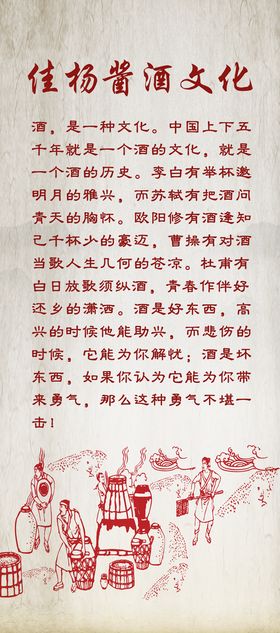 佳杨酱酒文化
酒，是一种文化。中国上下五
千年就是一个酒的文化，就是
一个酒的历史。李白有举杯邀
明月的雅兴，而苏轼有把酒问
青天的胸怀。欧阳修有酒逢知
己千杯少的豪迈，曹操有对酒
当歌人生几何的苍凉。杜甫有
白日放歌须纵酒，青春作伴好
还乡的潇洒。酒是好东西，高
兴的时候他能助兴，而悲伤的
时候，它能为你解忧；酒是坏
东西，如果你认为它能为你带
来勇气，那么这种勇气不堪一
击！